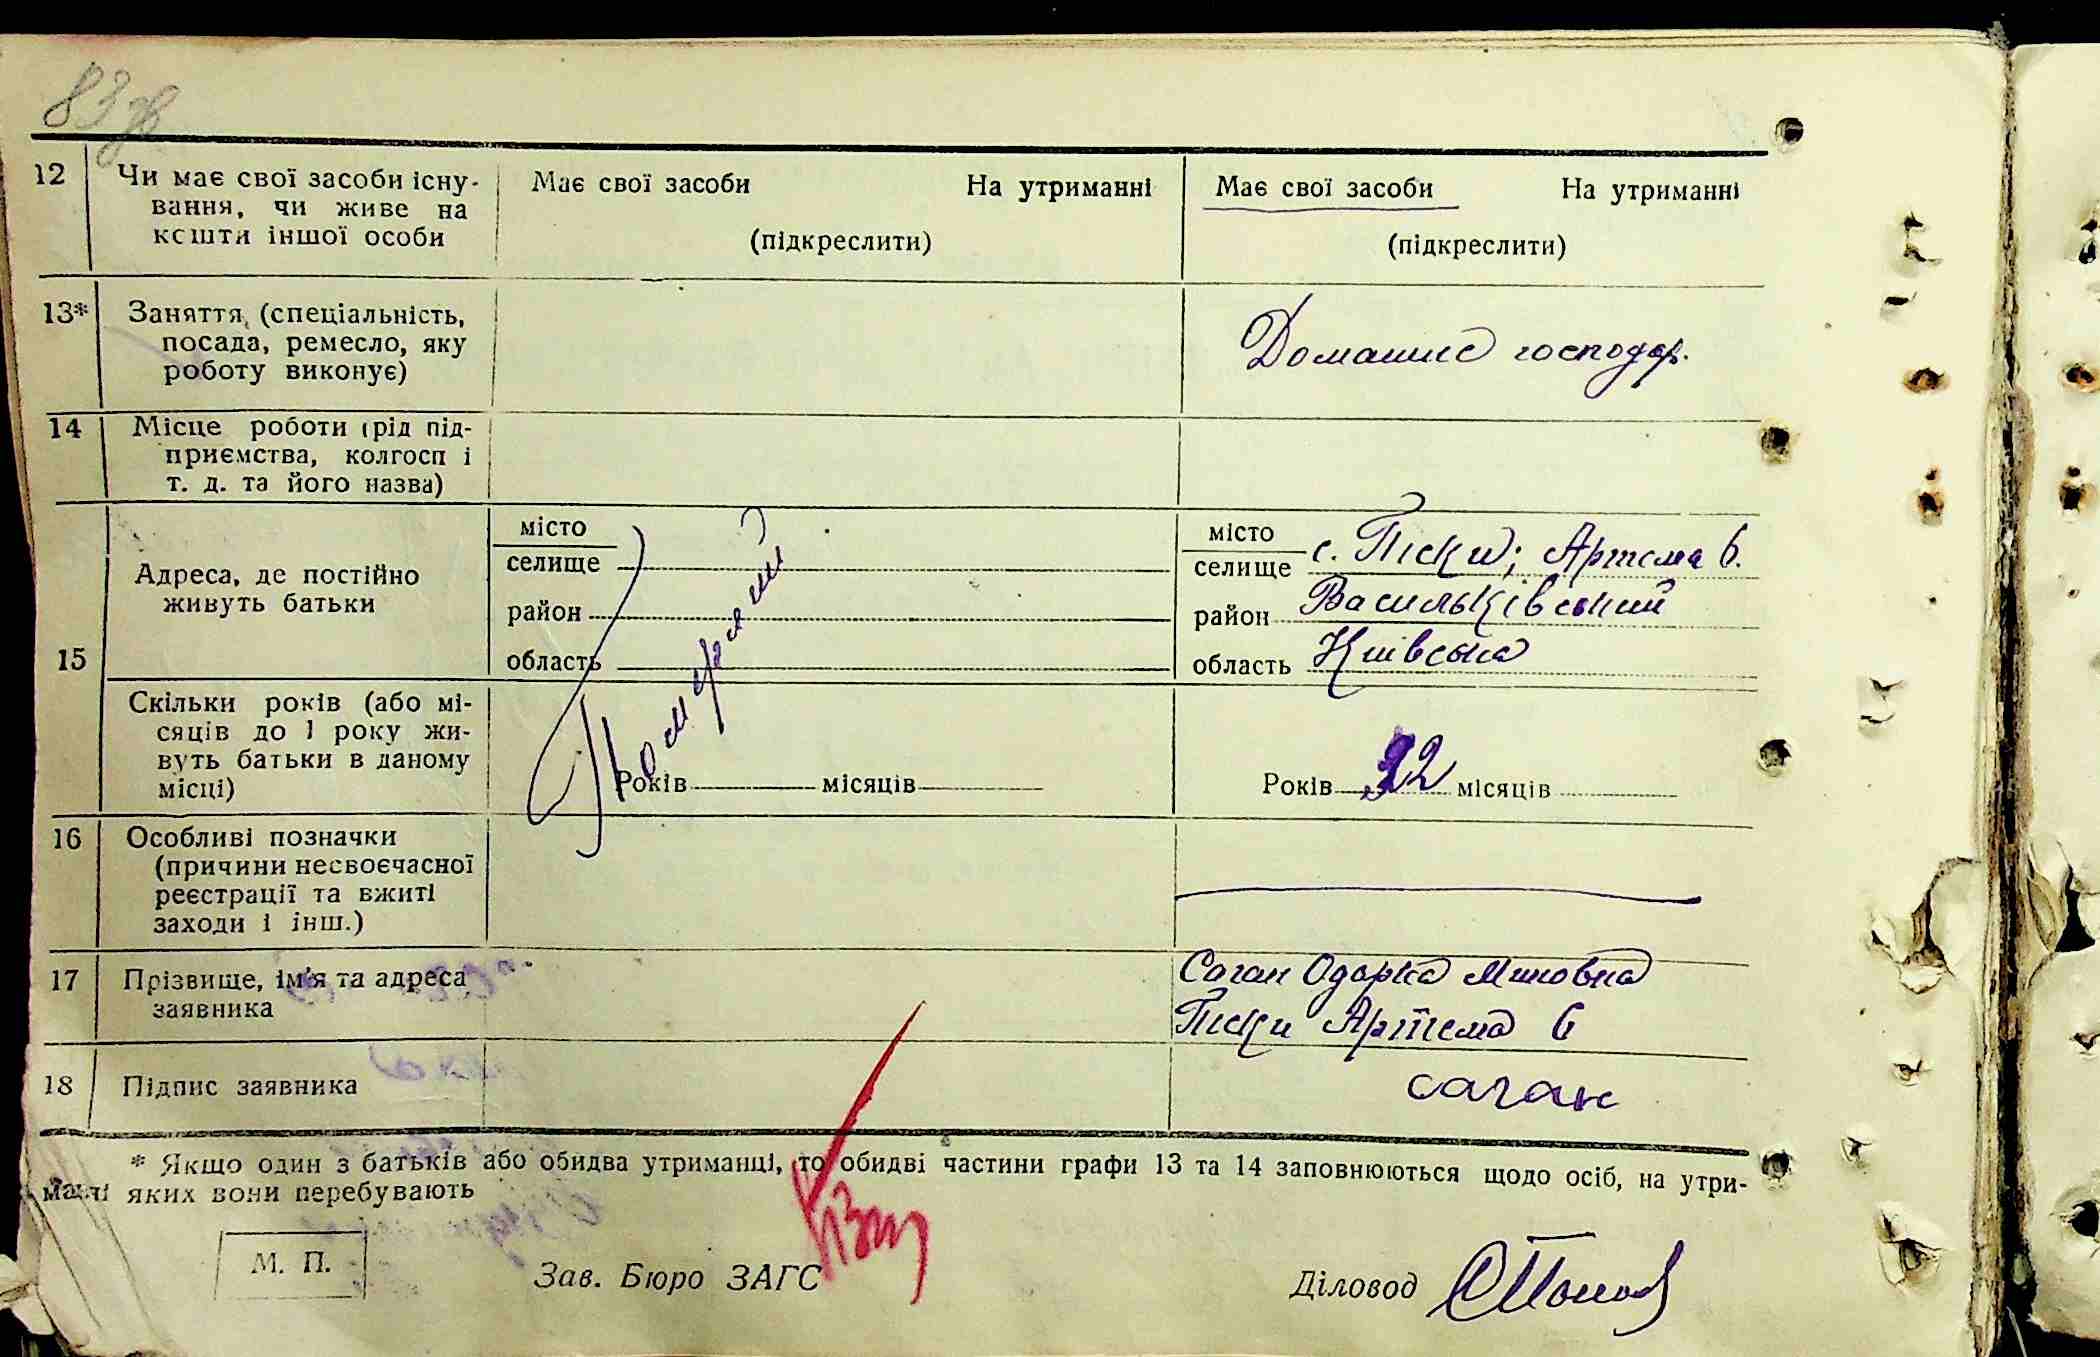 83 зв
12 Чи має свої засоби існу- Має свої засоби На утриманні Має свої засоби На утриманні
вання, чи живе на
кошти іншої особи (підкреслити) (підкреслити)
13* Заняття, (спеціальність,
посада, ремесло, яку Домашнє господар.
роботу виконує)
14 Місце роботи (рід під-
приємства, колгосп і
т. д. та його назва)
місто місто
селище селище с. Піски; Артема 6.
Адреса, де постійно
живуть батьки район район Васильківський
15 область область Київська
Померлий
Скільки років (або мі-
сяців до 1 року жи-
вуть батьки в даному
місці) Років місяців Років 22 місяців
16 Особливі позначки
(причини несвоєчасної
реєстрації та вжиті
заходи і інш.)
17 Прізвище, ім'я та адреса Саган Одарка Миновна
заявника Піски Артема 6
18 Підпис заявника саган
* Якщо один з батьків або обидва утриманці, то обидві частини графи 13 та 14 заповнюються щодо осіб, на утри-
манні яких вони перебувають
М. П. Зав. Бюро ЗАГС Діловод